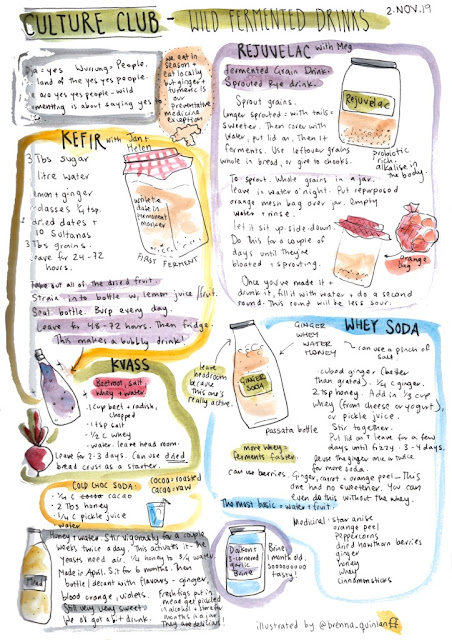 CULTURE CLUB - WILD FERMENTED DRINKS
2.NOV.19
Ja = yes Wurrung = People.
land of the yes yes people.
yes yes people - wild
menting is about saying yes to
we eat in
season +
eat locally
but ginger +
turmeric is
our
preventative
medicine
exception
KEFIR with Jan +
Helen
3 Tbs sugar
litre water
lemon + ginger
molasses ¼ tsp.
dried dates +
10 Sultanas
3 Tbs grains.
leave for 24-72
hours.
write the
date in
permanent
marker
FIRST FERMENT
Take out all of the dried fruit.
Strain into bottle w, lemon juice/fruit.
Seal bottle. Burp every day.
Leave for 48-72 hours. Then fridge.
This makes a bubbly drink!
REJUVELAC with Meg
Fermented Grain Drink.
Sprouted Rye drink.
Sprout grains.
Longer sprouted = with tails =
sweeter. Then cover with
water, put lid on. Then it
ferments. Use leftover grains
whole in bread, or give to chooks.
Rejuvelac
probiotic
rich.
alkalise in
the body.
To sprout. Whole grains in a jar.
leave in water o'night. Put repurposed
orange mesh bag over jar. Empty
water + rinse.
let it sit up-side-down.
Do this for a couple of
days until they're
bloated + sprouting.
orange
bag
Once you've made it +
drunk it, fill it with water + do a second
round. This round will be less sour.
KVASS
Beetroot, salt
whey + water
1 cup beet + radish,
chopped
1 tsp salt
½ c whey
water. leave head room.
Leave for 2-3 days. Can use dried
bread crust as a starter.
WHEY SODA
leave
headroom
because
this one's
really active.
GINGER
SODA
GINGER
WHEY
WATER
HONEY
can use a pinch of
salt
passata bottle
cubed ginger (better
than grated). ¼ c ginger.
2 tsp honey. Add in ⅓ cup
whey (from cheese or yogurt),
or pickle juice.
Stir together.
Put lid on + leave for a few
days until fizzy. 3-4 days.
Reuse the ginger mix a twice
for more soda.
more whey =
ferments faster.
can use berries.
Ginger, carrot + orange peel - This
one had no sweetener. You can
even do this without the whey.
The most basic = water + fruit.
COLD CHOC SODA
cocoa = roasted
cacao = raw
¼ c cacao
2 Tbs honey
¼ c pickle juice
water
Mead
Honey + water. Stir vigorously for a couple
weeks twice a day. This activates it - the
yeasts need air. ¼ honey to ¾ water.
Made in April. Sit for 6 months. Then
bottle | decant with flavours - ginger,
blood orange, violets.
Still very very sweet.
We all got a bit drunk.
Fresh figs put in
mead get pickled
in alcohol + store for
months in a jar.
They are delicious!
Daikon +
3-cornered
garlic
Brine
Brine
1 month old.
sooooooooo
tasty!
Medicinal: star anise
orange peel
Peppercorns
dried hawthorn berries
ginger
honey
whey
Cinnamon sticks
illustrated by @brenna_quinlan